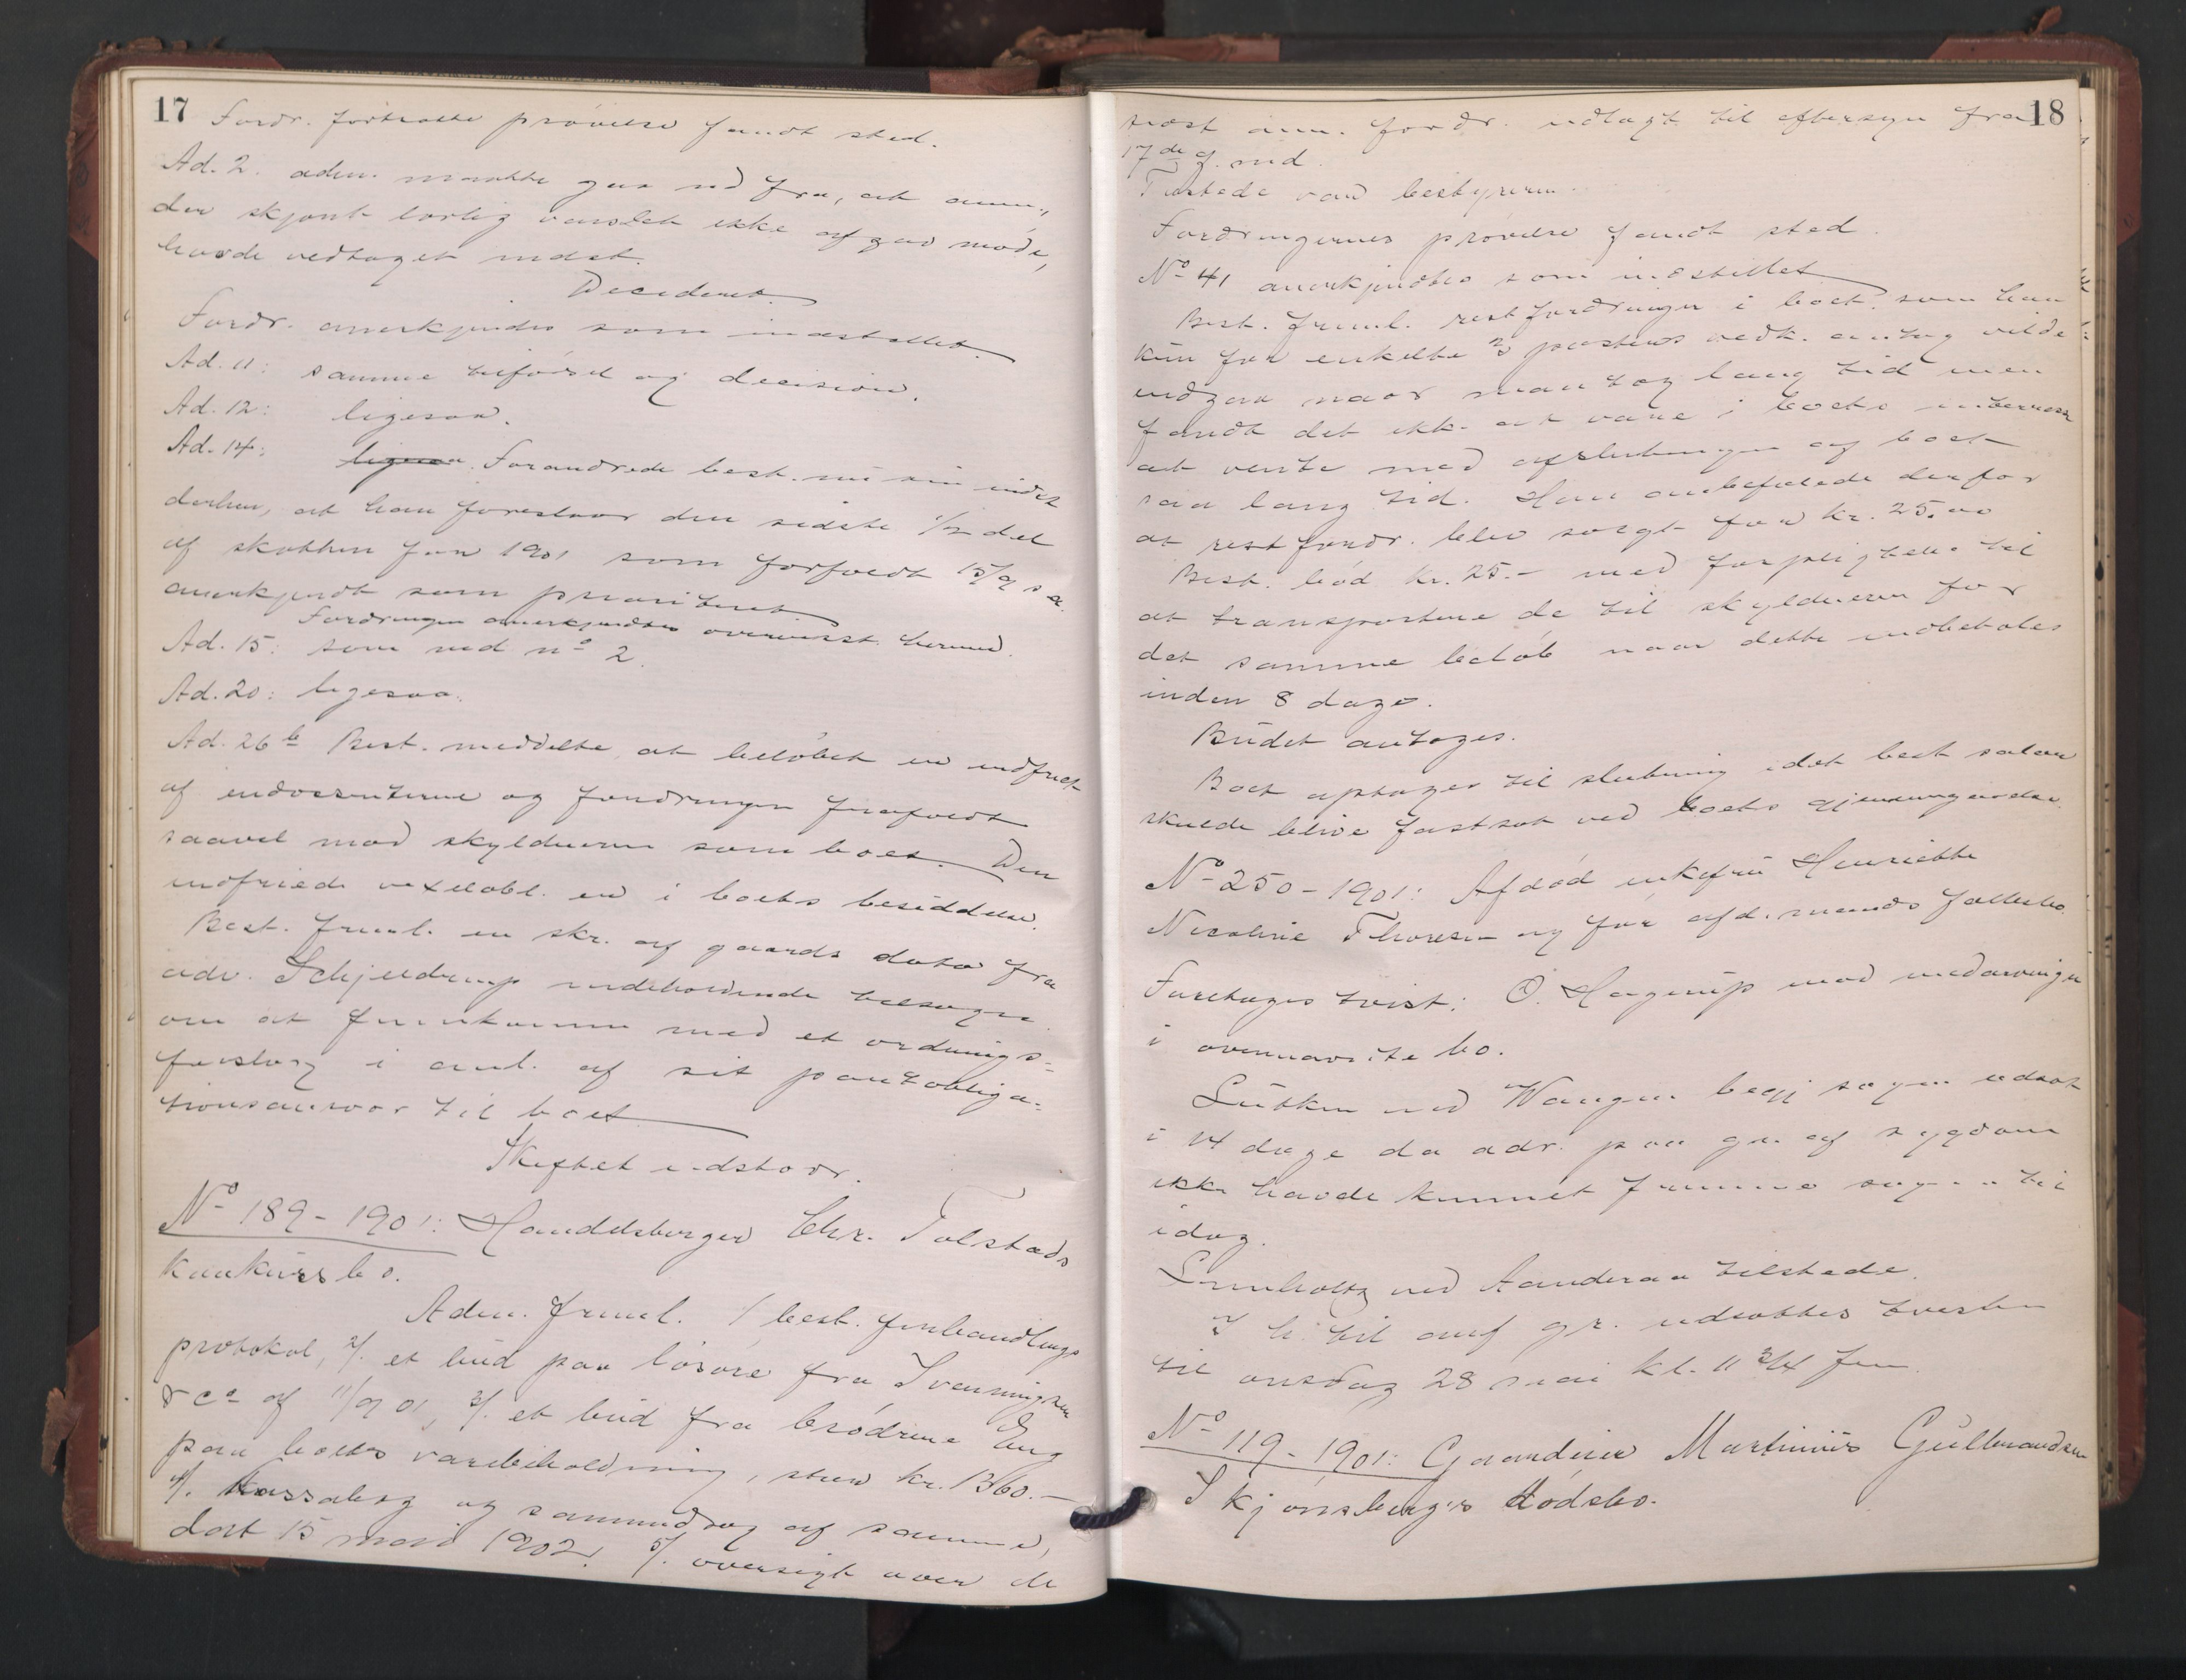 17
Fordr. fortsatte prøvelse fandt sted.
Ad. 2. adm. maatte gaa ud fra, at anm.,
der skjønt lovlig varslet ikke af gav møde,
havde vedtaget indst.
Decideret.
Fordr. anerkjendes som indstillet.
Ad. 11: samme tilførsel og decision.
Ad. 12: ligesaa.
Ad. 14: ligesaa. Forandrede best. nu sin indst.
derhen, at han foreslaar den sidste 1/2 del
af skatten for 1901 som forfaldt 15/9 s. a.
anerkjendt som prioriteret
Fordringen anerkjendtes overensst. hermed.
Ad. 15: som ved no 2.
Ad. 20: ligesaa.
Ad. 26 b Best. meddelte, at beløbet er indfriet
af endossenterne og fordringen frafaldt
saavel mod skyldneren som boet. Den
indfriede vexelobl. er i boets besiddelse.
Best. freml. en skr. af gaards dato fra
adv. Schjeldrup indeholdende tilsagn
om at fremkomme med et ordnings-
forslag i anl. af sit pantobliga-
tionsansvar til boet
Skiftet udstaar.
No 189 - 1901: Handelsborger Chr. Tolstads
konkursbo.
Adm. freml. 1/ best. forhandlings
protokol, 2/. et bud paa løsøre fra Svenningsen
& Co af 11/9 01, 3/. et bud fra brødrene Eng
paa boets varebeholdning, stort kr. 1360.-
4/. Kassabog og sammendrag af samme,
dat 15 mai 1902. 5/. oversigt over de
18
sidst anm. fordr. udlagt til eftersyn fra
17de d. md.
Tilstede var bestyreren.
Fordringernes prøvelse fandt sted.
No 41 anerkjendtes som indstillet
Best. freml. restfordringer i boet som han
kun for enkelte posters vedk. antog vilde
indgaa naar man tog lang tid men
fandt det ikk. at være i boets interesse
at vente med afslutningen af boet
saa lang tid. Han anbefalede derfor
at restfordr. blev solgt for kr. 25.00
Best. bød kr. 25.- med forpligtelse til
at transportere de til skyldneren for
det samme beløb naar dette indbetales
inden 8 dage.
Budet antages.
Boet optages til slutning idet best salær
skulde blive fastsat ved boets gjennemgaaelse.
No 250 - 1901: Afdød enkefru Henriette
Nicoline Thoresen og før afd. mands fællesbo.
Foretages tvist: O. Hagerup mod medarvinger
i ovennævnte bo.
Lütken ved Wangen begj sagen udsat
i 14 dage da adv. paa gr. af sygdom
ikke havde kunnet fremme sagen til
idag.
Lumholtz ved Aanderaa tilstede.
I h. til anf gr. udsattes tvisten
til onsdag 28 mai kl. 11 3/4 fm.
No 119 - 1901: Gaardeier Martinius Gulbrandsen
Skjønsbergs dødsbo.